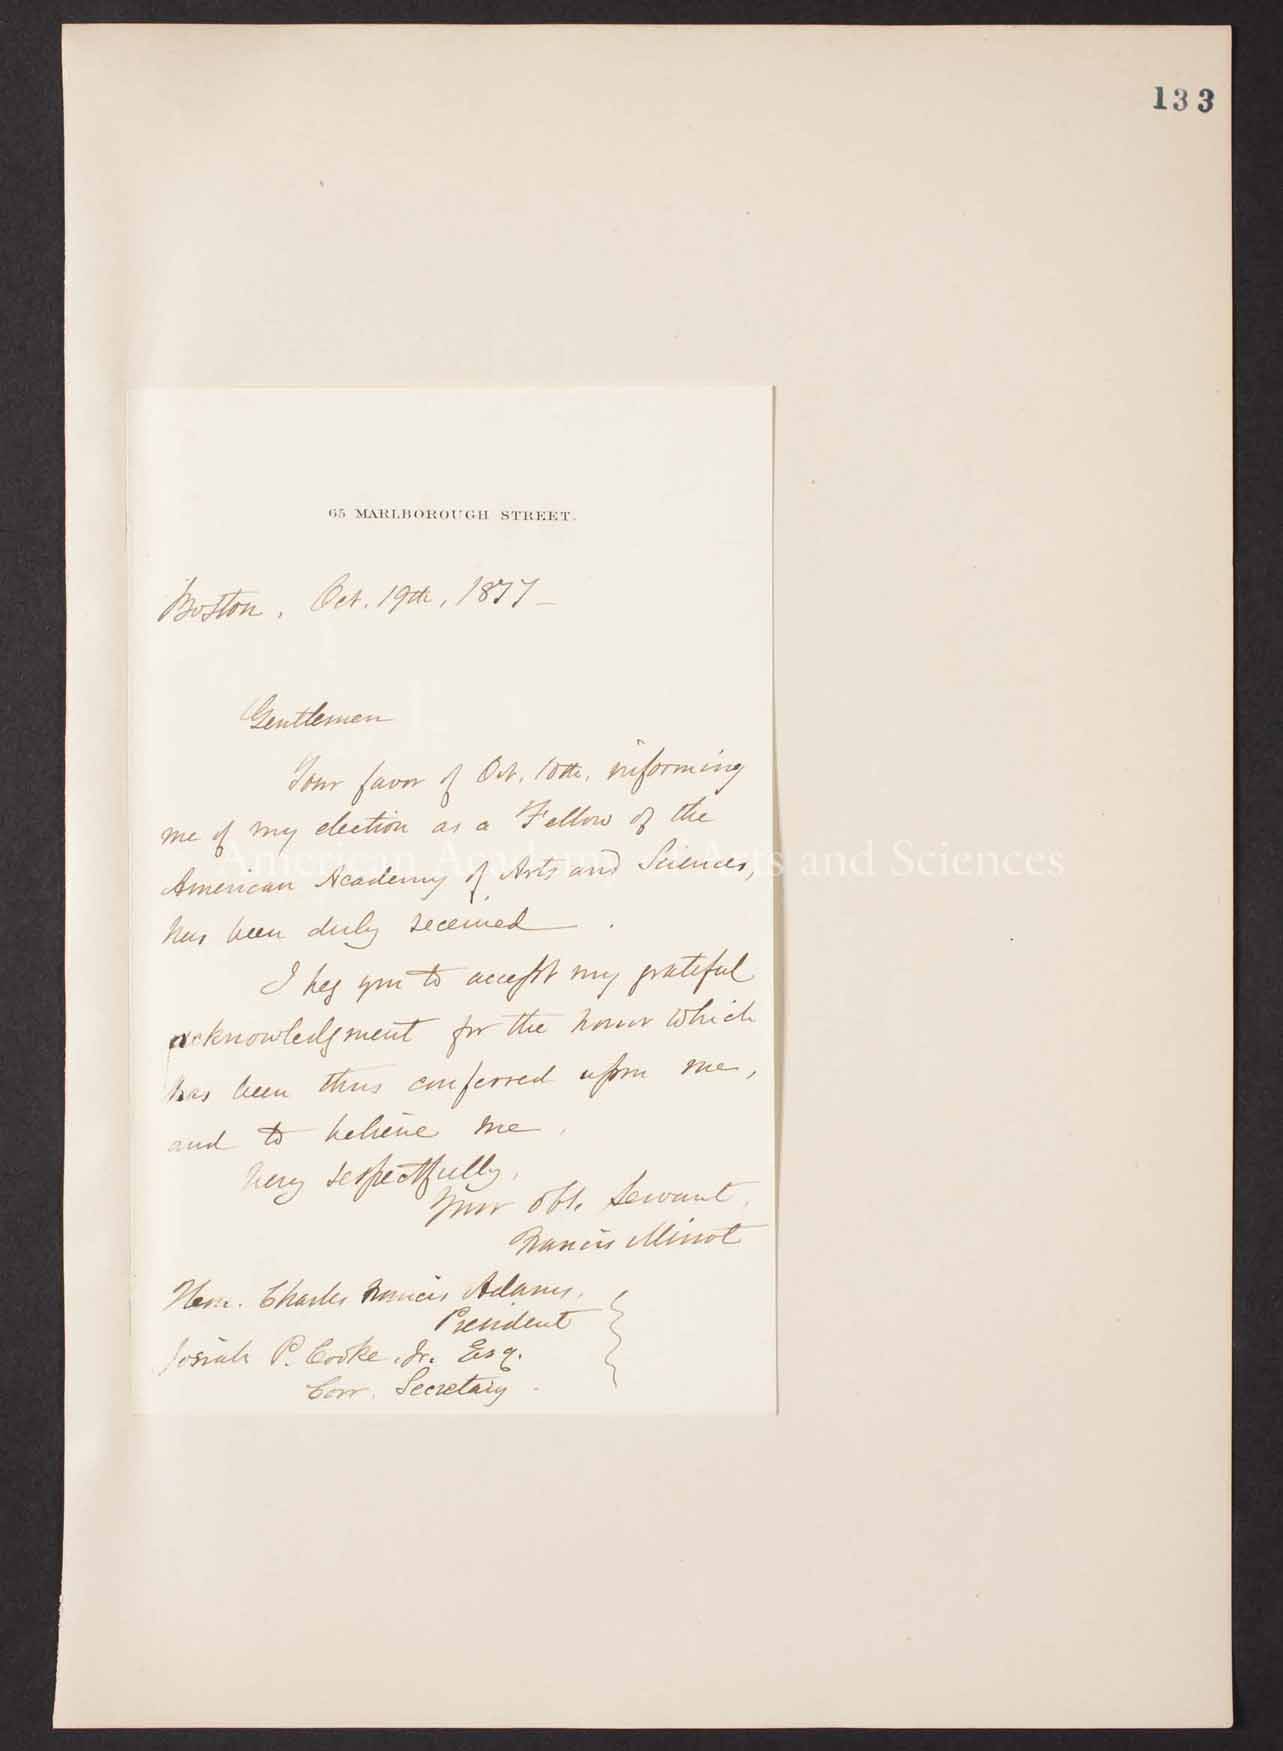 133
65 MARLBOROUGH STREET.
Boston, Oct. 19th, 1877_
Gentlemen
Your favor of Oct. 10th, informing
me of my election as a Fellow of the
American Academy of Arts and Sciences,
American Academy of Arts and Sciences
has been duly received.
I beg you to accept my grateful
acknowledgment for the honor which
has been thus conferred upon me,
and to believe me,
Very respectfully,
Your obt. Servant,
Francis Minot
Hon. Charles Francis Adams,
President
Josiah P. Cooke, Jr. Esq.
Corr. Secretary.